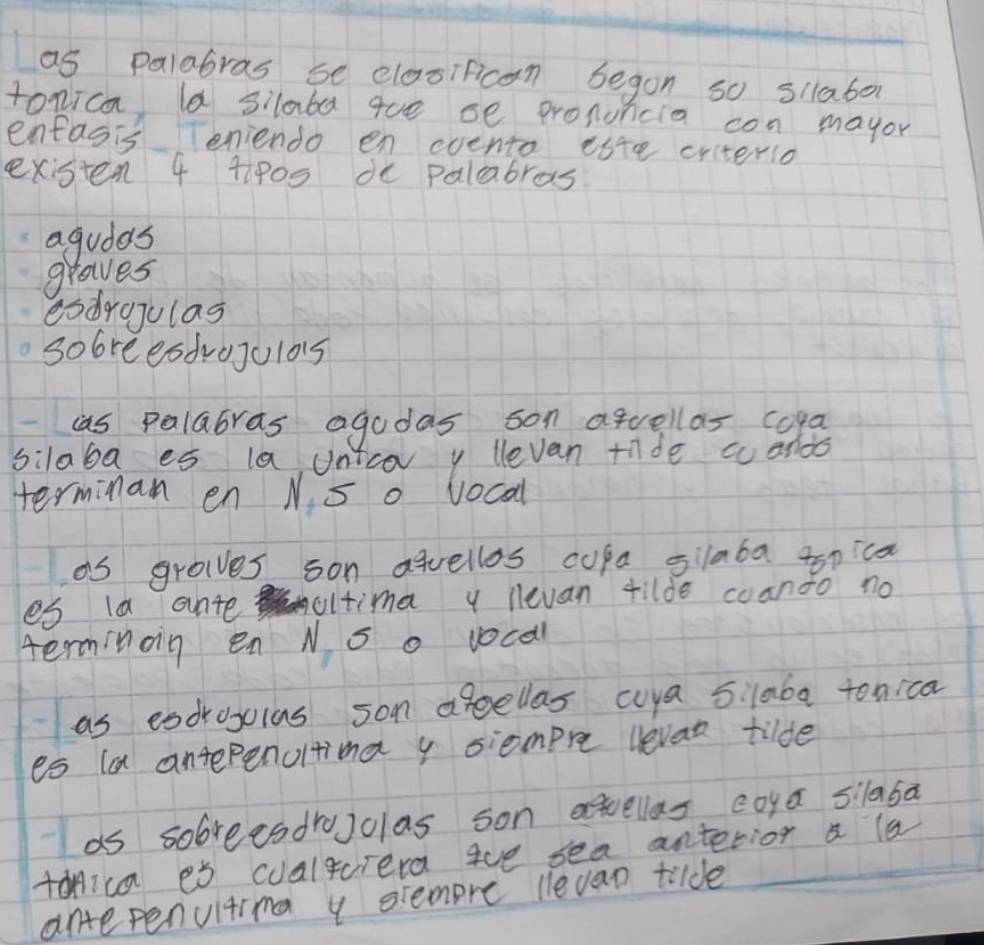 Las palabras se clasifican segun su silaba
tonica, la silaba que se pronuncia con mayor
enfasis Teniendo en cuenta este criterio
existen 4 tipos de palabras
• agudas
• graves
• esdrujulas
• sobreesdrujulas
- Las palabras agudas son aquellas cuya
silaba es la unica y llevan tilde cuando
terminan en N, S o vocal
- Las graves son aquellas cuya silaba tonica
es la ante ultima y llevan tilde cuando no
terminan en N, S o vocal
- Las esdrujulas son aquellas cuya silaba tonica
es la antepenultima y siempre llevan tilde
- Las sobreesdrujulas son aquellas cuya silaba
tonica es cualquiera que sea anterior a la
antepenultima y siempre llevan tilde